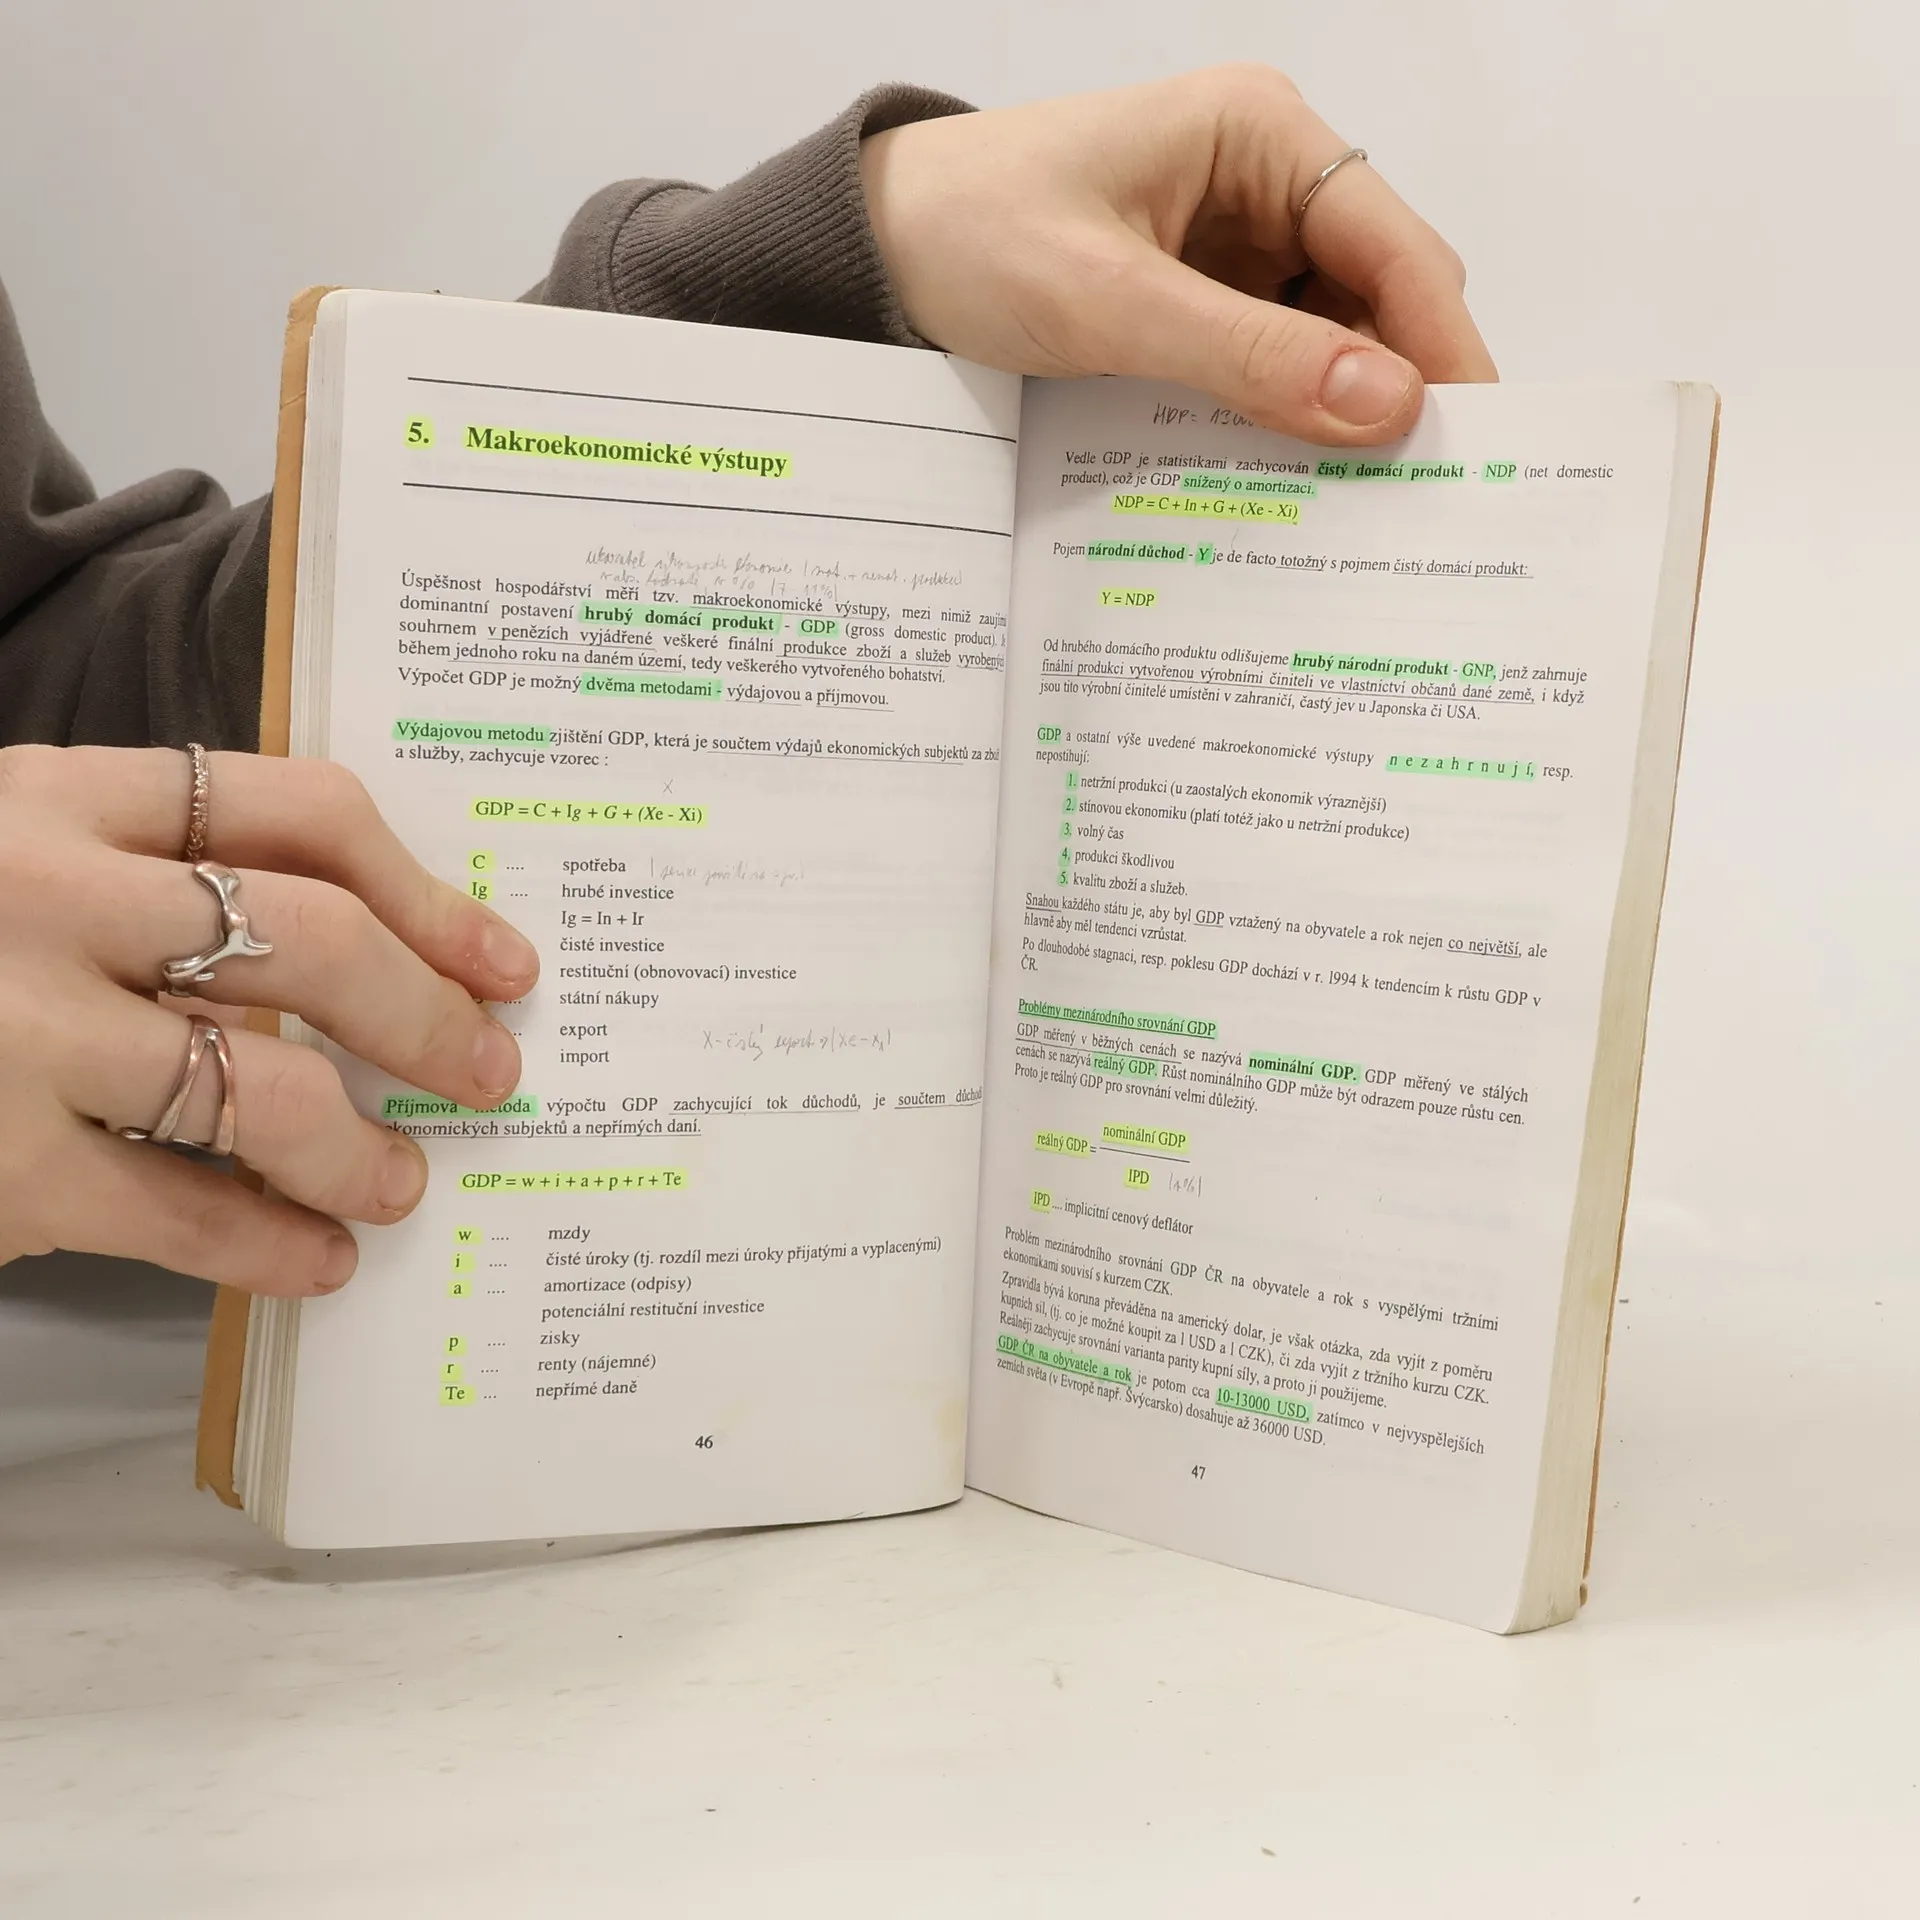 5. Makroekonomické výstupy
Úspěšnost hospodářství měří tzv. makroekonomické výstupy, mezi nimiž
dominantní postavení hrubý domácí produkt - GDP (gross domestic product).
souhrnem v penězích vyjádřené veškeré finální produkce zboží a služeb
během jednoho roku na daném území, tedy veškerého vytvořeného bohatství.
Výpočet GDP je možný dvěma metodami - výdajovou a příjmovou.
Výdajovou metodu zjištění GDP, která je součtem výdajů ekonomických subjektů za
a služby, zachycuje vzorec :
X
GDP = C + Ig + G + (Xe - Xi)
C .... spotřeba
Ig .... hrubé investice
Ig = In + Ir
čisté investice
restituční (obnovovací) investice
.... státní nákupy
.. export
import
Příjmová výpočtu GDP zachycující tok důchodů, je součtem
ekonomických subjektů a nepřímých daní.
GDP = w + i + a + p + r + Te
w .... mzdy
i .... čisté úroky (tj. rozdíl mezi úroky přijatými a vyplacenými)
a .... amortizace (odpisy)
potenciální restituční investice
p .... zisky
r .... renty (nájemné)
Te ... nepřímé daně
46
HDP =
Vedle GDP je statistikami zachycován čistý domácí produkt - NDP (net domestic
product), což je GDP snížený o amortizaci.
NDP = C + In + G + (Xe - Xi)
Pojem národní důchod - Y je de facto totožný s pojmem čistý domácí produkt:
Y = NDP
Od hrubého domácího produktu odlišujeme hrubý národní produkt - GNP, jenž zahrnuje
finální produkci vytvořenou výrobními činiteli ve vlastnictví občanů dané země, i když
jsou tito výrobní činitelé umístěni v zahraničí, častý jev u Japonska či USA.
GDP a ostatní výše uvedené makroekonomické výstupy n e z a h r n u j í, resp.
nepostihují:
1. netržní produkci (u zaostalých ekonomik výraznější)
2. stínovou ekonomiku (platí totéž jako u netržní produkce)
3. volný čas
4. produkci škodlivou
5. kvalitu zboží a služeb.
Snahou každého státu je, aby byl GDP vztažený na obyvatele a rok nejen co největší, ale
hlavně aby měl tendenci vzrůstat.
Po dlouhodobé stagnaci, resp. poklesu GDP dochází v r. 1994 k tendencím k růstu GDP v
ČR.
Problémy mezinárodního srovnání GDP
GDP měřený v běžných cenách se nazývá nominální GDP. GDP měřený ve stálých
cenách se nazývá reálný GDP. Růst nominálního GDP může být odrazem pouze růstu cen.
Proto je reálný GDP pro srovnání velmi důležitý.
nominální GDP
reálný GDP =
IPD
IPD .... implicitní cenový deflátor
Problém mezinárodního srovnání GDP ČR na obyvatele a rok s vyspělými tržními
ekonomikami souvisí s kurzem CZK.
Zpravidla bývá koruna převáděna na americký dolar, je však otázka, zda vyjít z poměru
kupních sil, (tj. co je možné koupit za 1 USD a 1 CZK), či zda vyjít z tržního kurzu CZK.
Reálněji zachycuje srovnání varianta parity kupní síly, a proto ji použijeme.
GDP ČR na obyvatele a rok je potom cca 10-13000 USD, zatímco v nejvyspělejších
zemích světa (v Evropě např. Švýcarsko) dosahuje až 36000 USD.
47